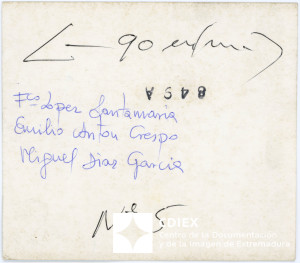 90
845A
Fco Lopez Santamaria
Emilio Anton Crespo
Miguel Diaz Garcia
Nº 5
CDIEX
Centro de la Documentación
y de la Imagen de Extremadura